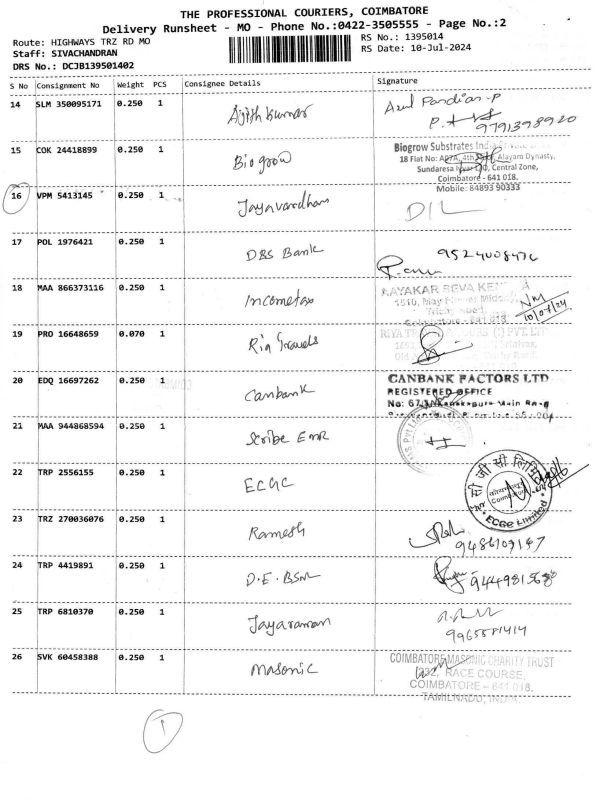 THE PROFESSIONAL COURIERS, COIMBATORE
Delivery Runsheet - MO - Phone No.:0422-3505555 - Page No.:2
Route: HIGHWAYS TRZ RD MO
RS No.: 1395014
Staff: SIVACHANDRAN
RS Date: 10-Jul-2024
DRS No.: DCJB139501402
S No Consignment No Weight PCS Consignee Details Signature
14 SLM 350095171 0.250 1 Ajith kumar
Arul Pandian.P
9791398920
15 COK 24418899 0.250 1 Biogrow
Biogrow Substrates
18 Flat No: 4th Alayam Dynasty,
Sundaresa Central Zone,
Coimbatore - 641 018.
Mobile: 84893 90333
16 VPM 5413145 0.250 1 Jayavardhan
D/L
17 POL 1976421 0.250 1 DBS Bank
9524008476
18 MAA 866373116 0.250 1 Incometax
AAYAKAR SEVA
1510, May
Coimbatore - 641 018
NM
10/07/24
19 PRO 16648659 0.070 1 Ria Travels
RIYA PVT. LTD
20 EDQ 16697262 0.250 1 Canbank
CANBANK FACTORS LTD
REGISTERED OFFICE
No: 67/1 Main Road
21 MAA 944868594 0.250 1 Scribe EMR
22 TRP 2556155 0.250 1 ECGC
ई सी जी सी लिमिटेड
Coimbatore
ECGC Limited
23 TRZ 270036076 0.250 1 Ramesh
9486107147
24 TRP 4419891 0.250 1 D.E.BSNL
25 TRP 6810370 0.250 1 Jayaraman
9965581414
26 SVK 60458388 0.250 1 Masonic
COIMBATORE MASONIC CHARITY TRUST
232, RACE COURSE,
COIMBATORE - 641 018.
TAMILNADU, INDIA.
1